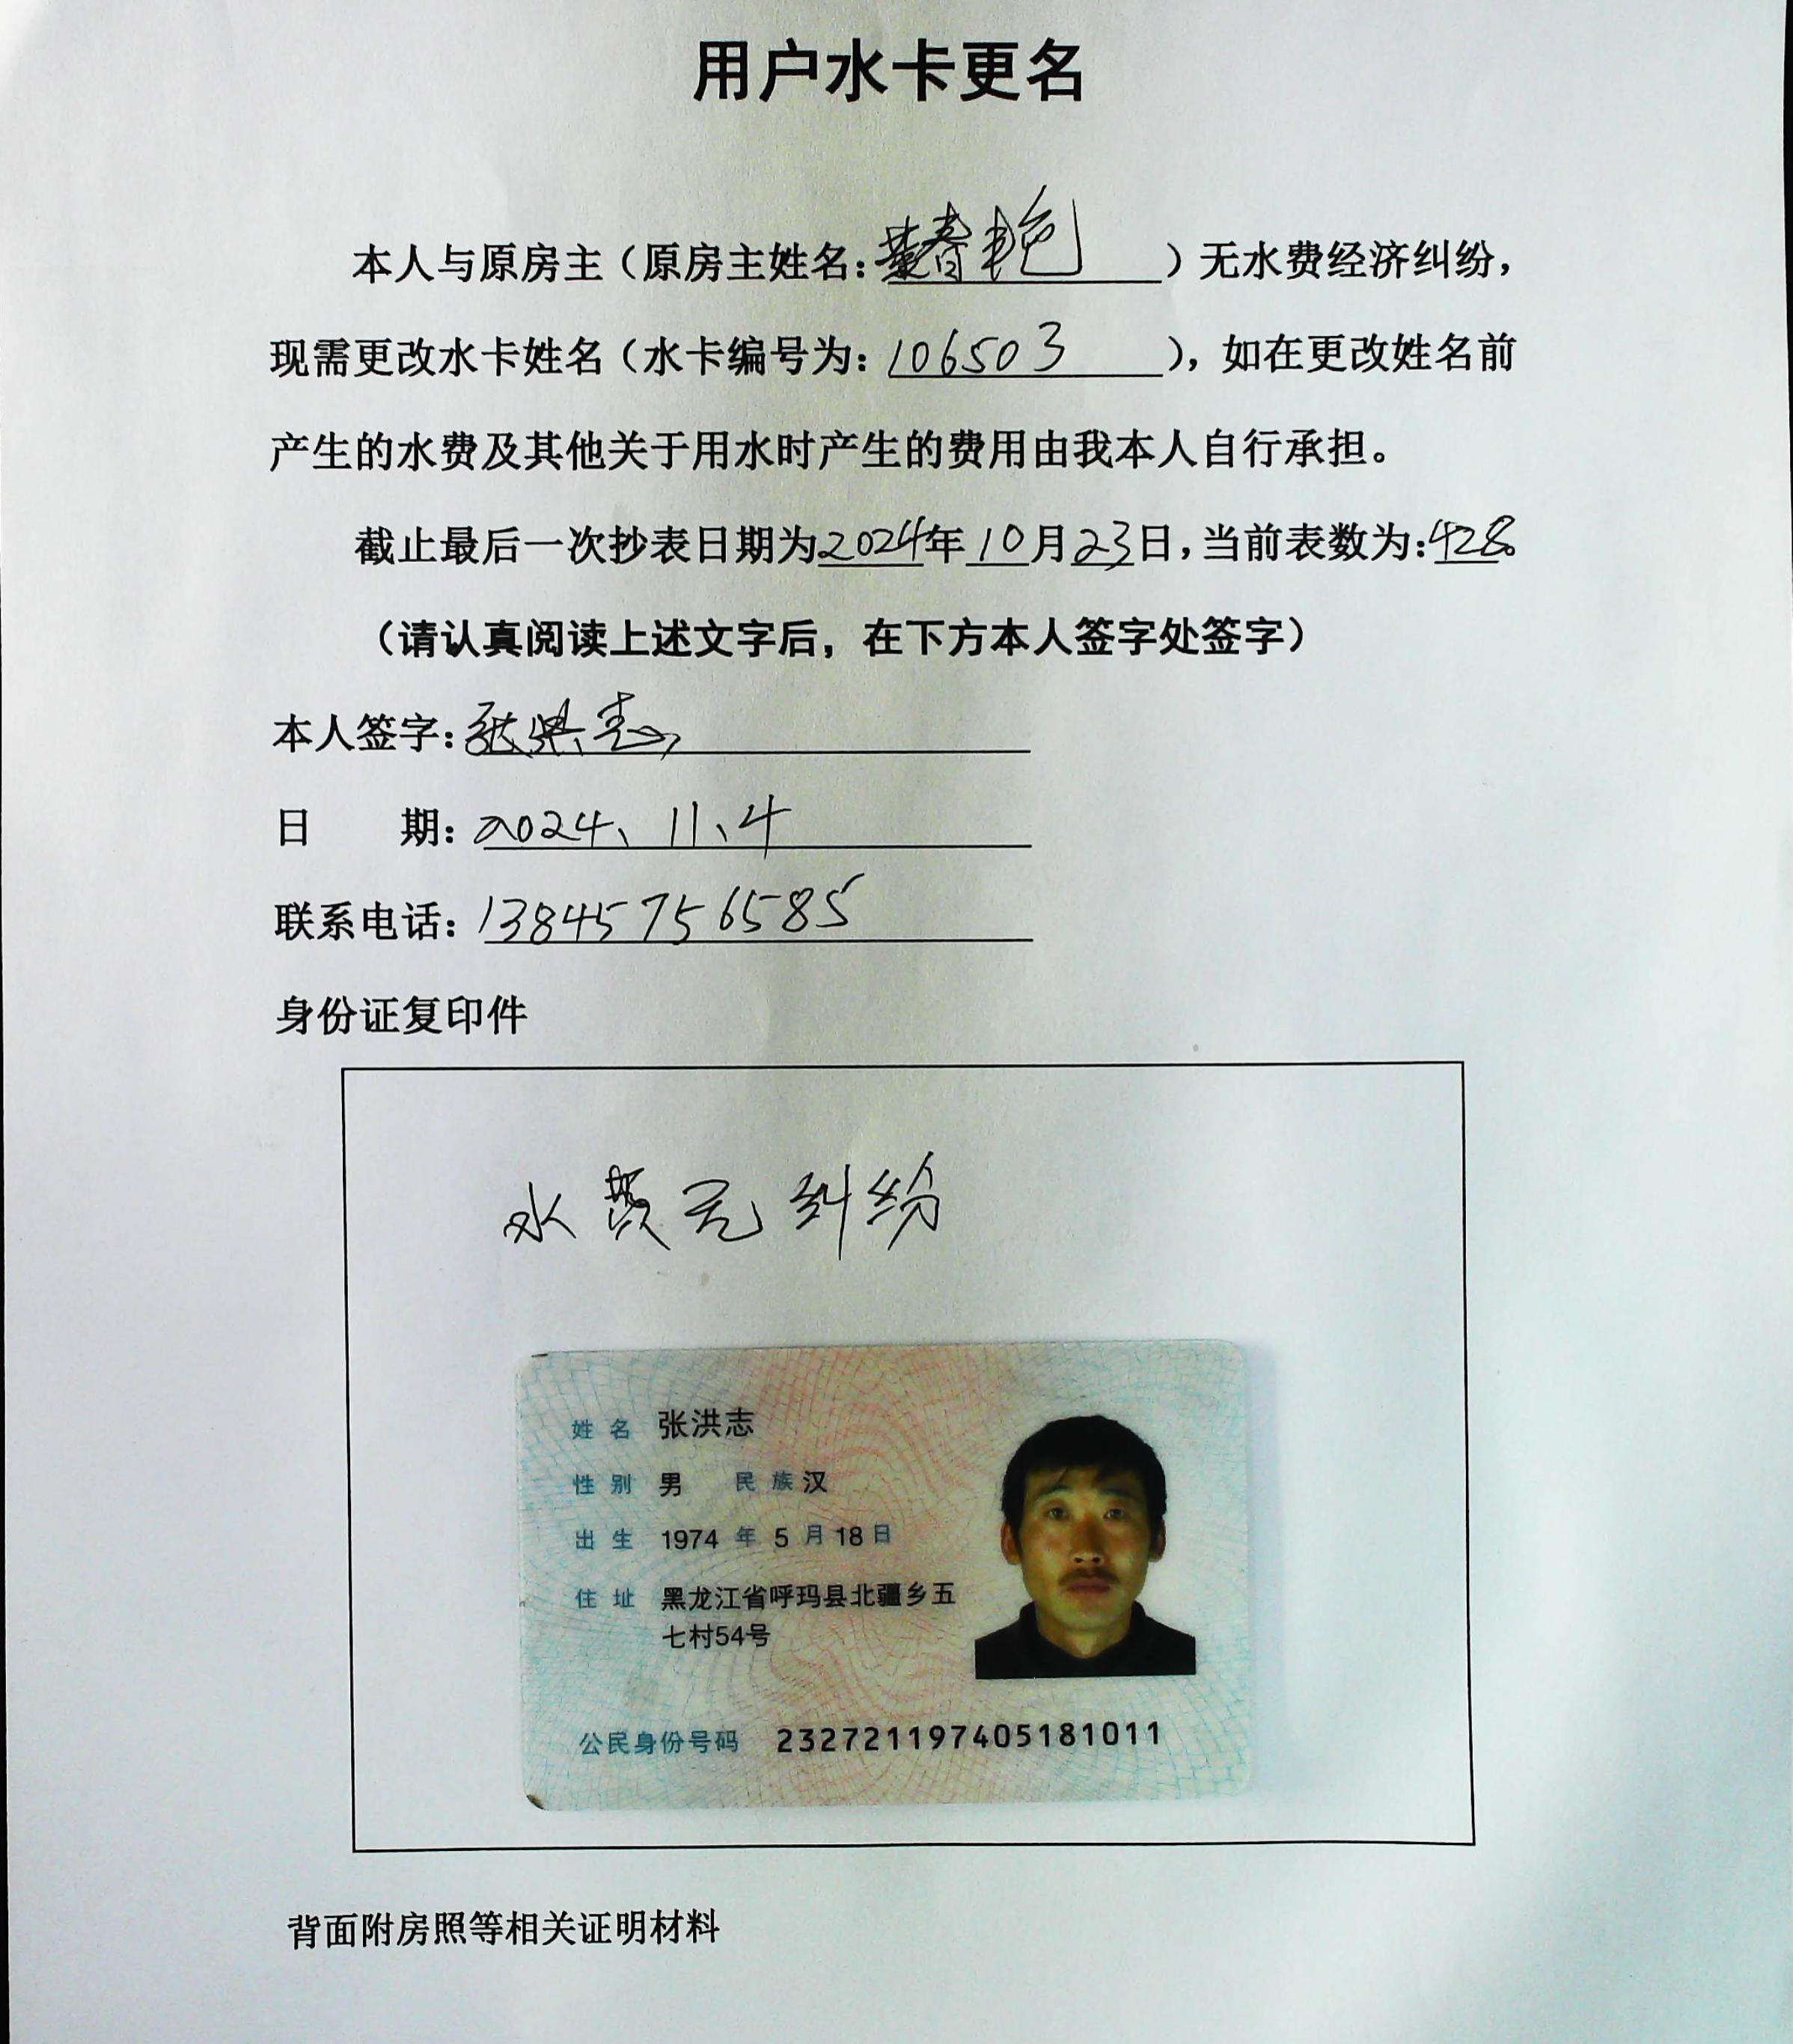 用户水卡更名
本人与原房主（原房主姓名：董春艳）无水费经济纠纷，
现需更改水卡姓名（水卡编号为：106503），如在更改姓名前
产生的水费及其他关于用水时产生的费用由我本人自行承担。
截止最后一次抄表日期为2024年10月23日，当前表数为：428。
（请认真阅读上述文字后，在下方本人签字处签字）
本人签字：张洪志
日 期：2024、11、4
联系电话：13845756585
身份证复印件
水费无纠纷
姓名 张洪志
性别 男 民族 汉
出生 1974 年 5 月 18 日
住址 黑龙江省呼玛县北疆乡五
七村54号
公民身份号码 232721197405181011
背面附房照等相关证明材料